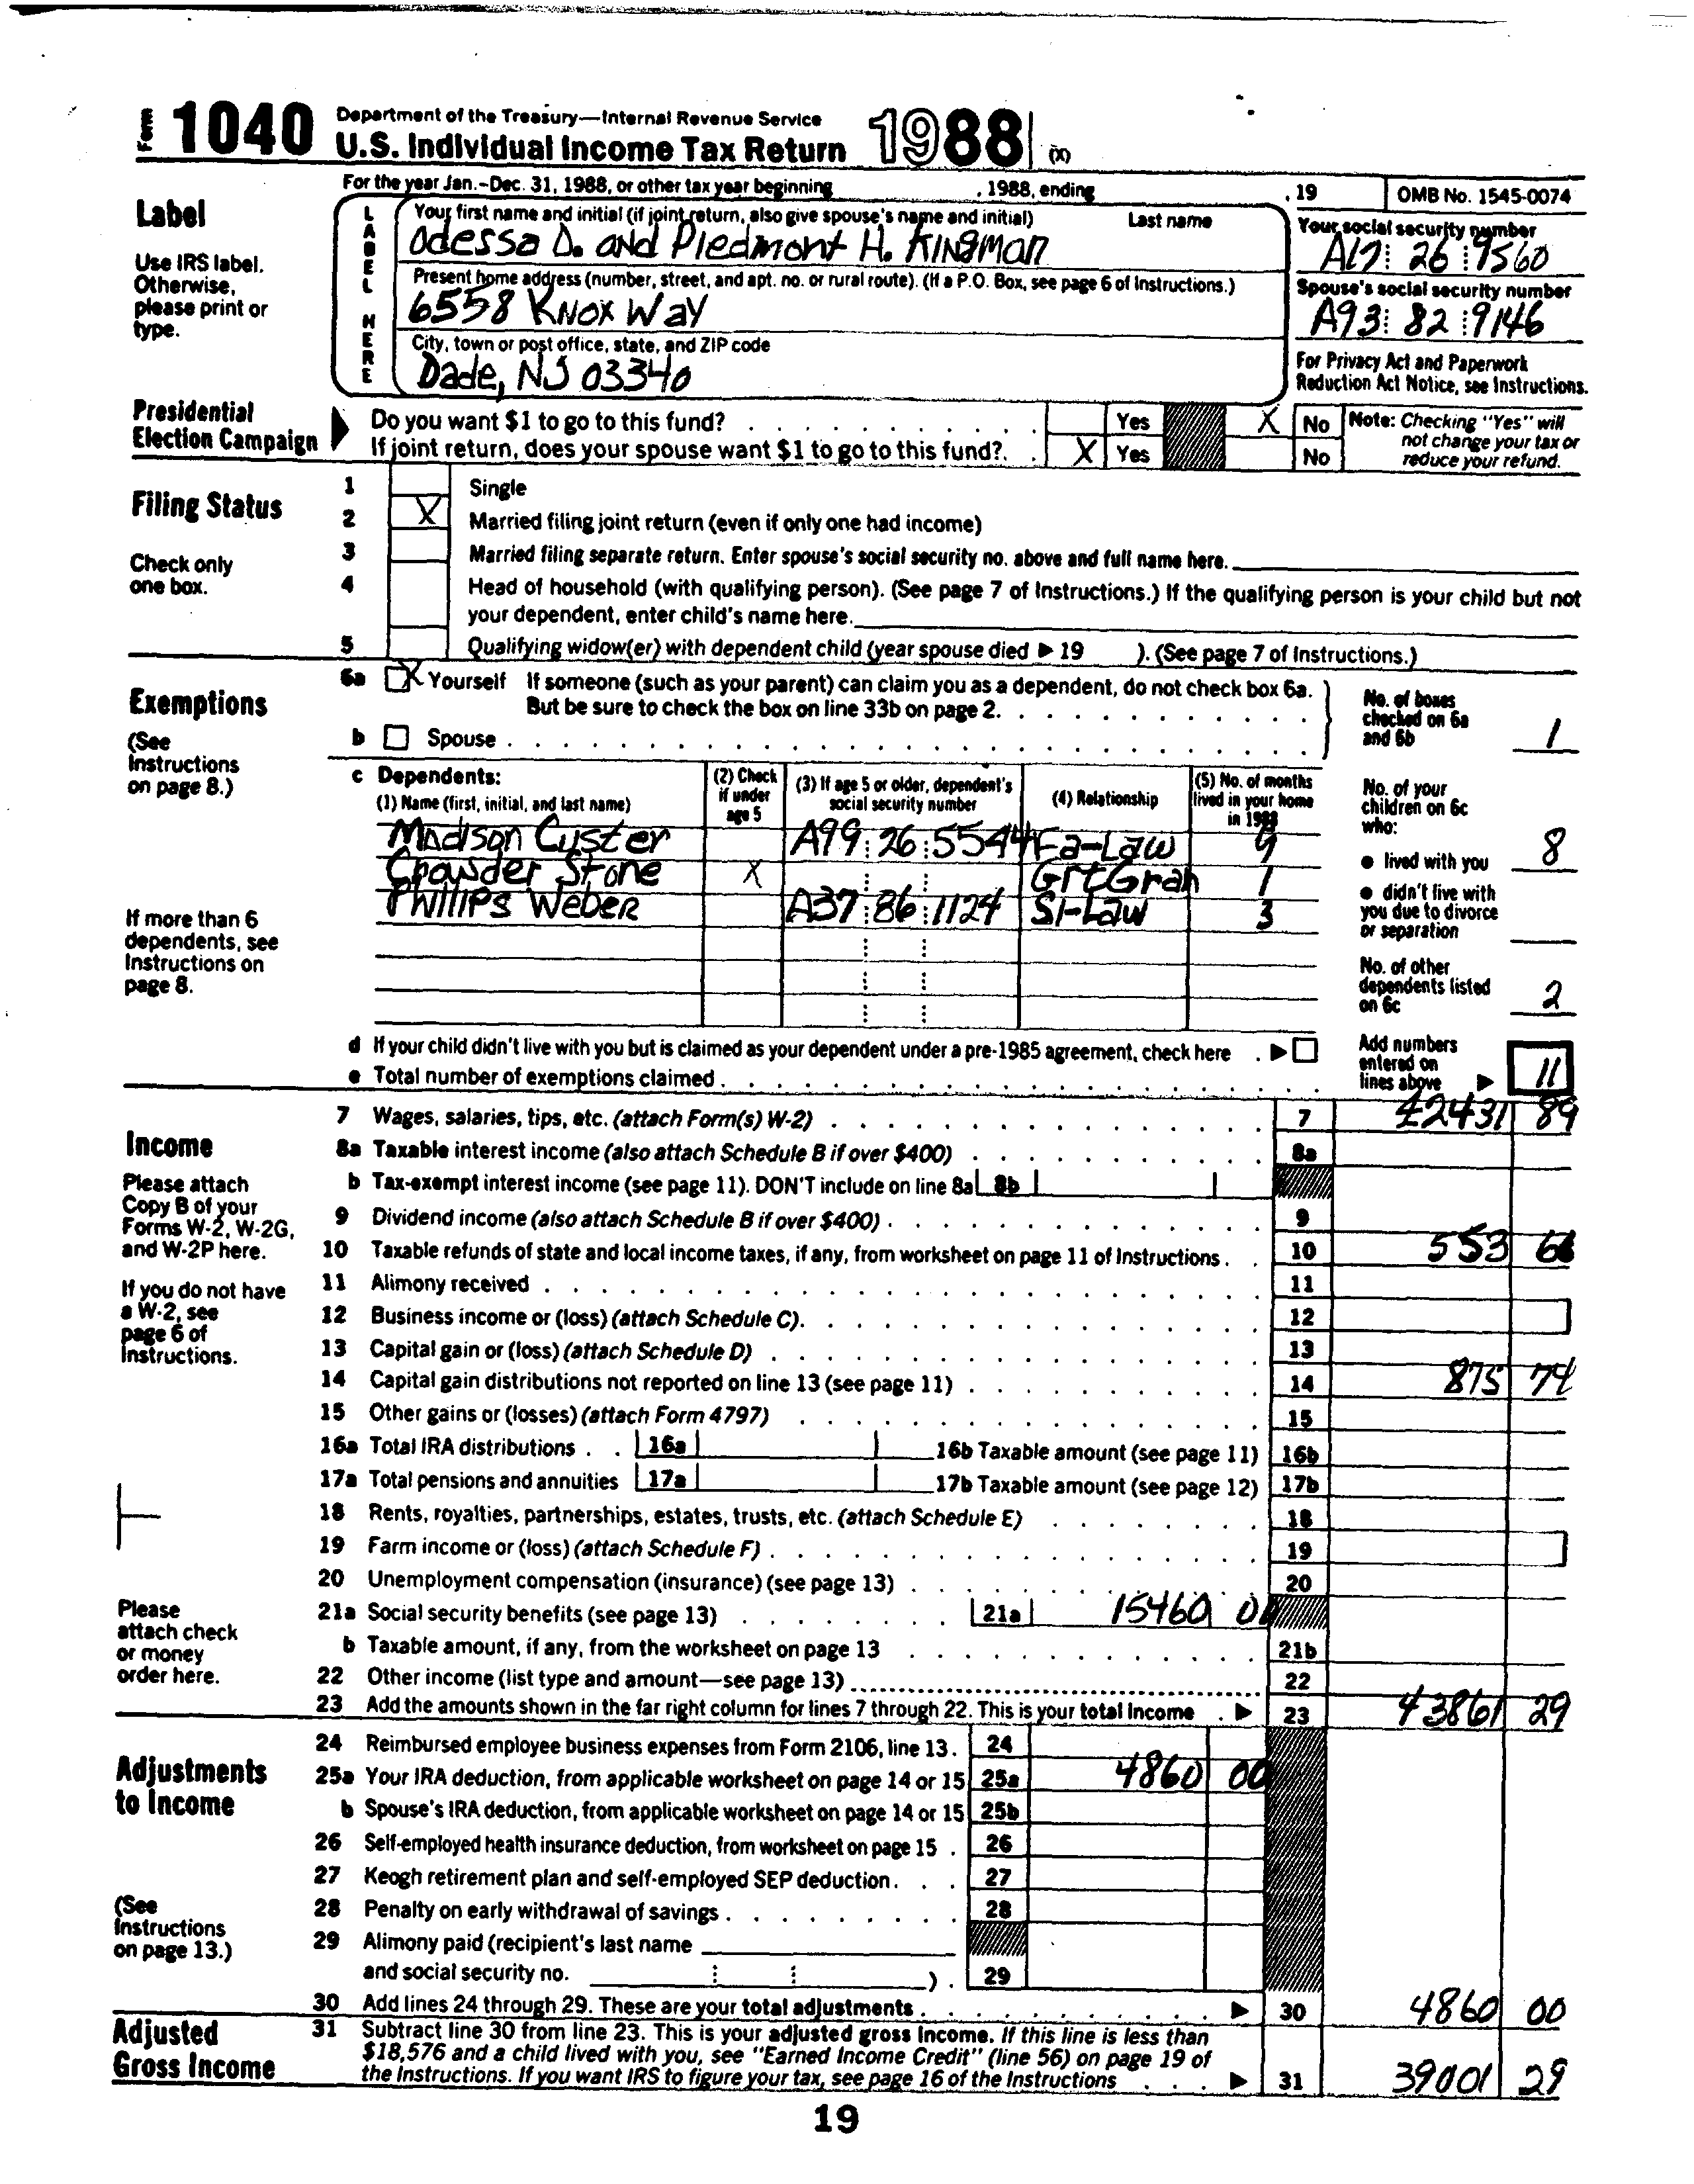 Form 1040 Department of the Treasury—Internal Revenue Service
U.S. Individual Income Tax Return 1988 (X)
For the year Jan.–Dec. 31, 1988, or other tax year beginning , 1988, ending , 19 OMB No. 1545-0074
Label
Use IRS label. Otherwise, please print or type.
LABEL HERE
Your first name and initial (if joint return, also give spouse's name and initial) Last name
Odessa D. and Piedmont H. Kingman
Your social security number
A17 26 9560
Present home address (number, street, and apt. no. or rural route). (If a P.O. Box, see page 6 of Instructions.)
6558 Knox Way
Spouse's social security number
A93 82 9146
City, town or post office, state, and ZIP code
Dade, NJ 03340
For Privacy Act and Paperwork Reduction Act Notice, see Instructions.
Presidential Election Campaign
Do you want $1 to go to this fund? Yes X No
If joint return, does your spouse want $1 to go to this fund? X Yes No
Note: Checking "Yes" will not change your tax or reduce your refund.
Filing Status
Check only one box.
1 Single
2 X Married filing joint return (even if only one had income)
3 Married filing separate return. Enter spouse's social security no. above and full name here.
4 Head of household (with qualifying person). (See page 7 of Instructions.) If the qualifying person is your child but not
your dependent, enter child's name here.
5 Qualifying widow(er) with dependent child (year spouse died ▶ 19 ). (See page 7 of Instructions.)
Exemptions
(See Instructions on page 8.)
6a X Yourself If someone (such as your parent) can claim you as a dependent, do not check box 6a.
But be sure to check the box on line 33b on page 2.
b Spouse
No. of boxes checked on 6a and 6b 1
c Dependents:
(1) Name (first, initial, and last name) (2) Check if under age 5 (3) If age 5 or older, dependent's social security number (4) Relationship (5) No. of months lived in your home in 1988
Madison Custer A99 26 5544 Fa-Law 9
Chowder Stone X GrtGran 1
Phillips Weber A37 86 1124 SI-Law 3
If more than 6 dependents, see Instructions on page 8.
No. of your children on 6c who:
● lived with you 8
● didn't live with you due to divorce or separation
No. of other dependents listed on 6c 2
d If your child didn't live with you but is claimed as your dependent under a pre-1985 agreement, check here ▶
e Total number of exemptions claimed
Add numbers entered on lines above ▶ 11
Income
Please attach Copy B of your Forms W-2, W-2G, and W-2P here.
If you do not have a W-2, see page 6 of Instructions.
7 Wages, salaries, tips, etc. (attach Form(s) W-2) 7 42431 89
8a Taxable interest income (also attach Schedule B if over $400) 8a
b Tax-exempt interest income (see page 11). DON'T include on line 8a 8b
9 Dividend income (also attach Schedule B if over $400) 9
10 Taxable refunds of state and local income taxes, if any, from worksheet on page 11 of Instructions. 10 553 66
11 Alimony received 11
12 Business income or (loss) (attach Schedule C). 12
13 Capital gain or (loss) (attach Schedule D) 13
14 Capital gain distributions not reported on line 13 (see page 11) 14 875 74
15 Other gains or (losses) (attach Form 4797) 15
16a Total IRA distributions 16a 16b Taxable amount (see page 11) 16b
17a Total pensions and annuities 17a 17b Taxable amount (see page 12) 17b
18 Rents, royalties, partnerships, estates, trusts, etc. (attach Schedule E) 18
19 Farm income or (loss) (attach Schedule F) 19
20 Unemployment compensation (insurance) (see page 13) 20
Please attach check or money order here.
21a Social security benefits (see page 13) 21a 15460 00
b Taxable amount, if any, from the worksheet on page 13 21b
22 Other income (list type and amount—see page 13) 22
23 Add the amounts shown in the far right column for lines 7 through 22. This is your total income ▶ 23 43861 29
Adjustments to Income
(See Instructions on page 13.)
24 Reimbursed employee business expenses from Form 2106, line 13. 24
25a Your IRA deduction, from applicable worksheet on page 14 or 15 25a 4860 00
b Spouse's IRA deduction, from applicable worksheet on page 14 or 15 25b
26 Self-employed health insurance deduction, from worksheet on page 15 26
27 Keogh retirement plan and self-employed SEP deduction. 27
28 Penalty on early withdrawal of savings 28
29 Alimony paid (recipient's last name
and social security no. ) 29
30 Add lines 24 through 29. These are your total adjustments ▶ 30 4860 00
Adjusted Gross Income
31 Subtract line 30 from line 23. This is your adjusted gross income. If this line is less than
$18,576 and a child lived with you, see "Earned Income Credit" (line 56) on page 19 of
the Instructions. If you want IRS to figure your tax, see page 16 of the Instructions ▶ 31 39001 29
19